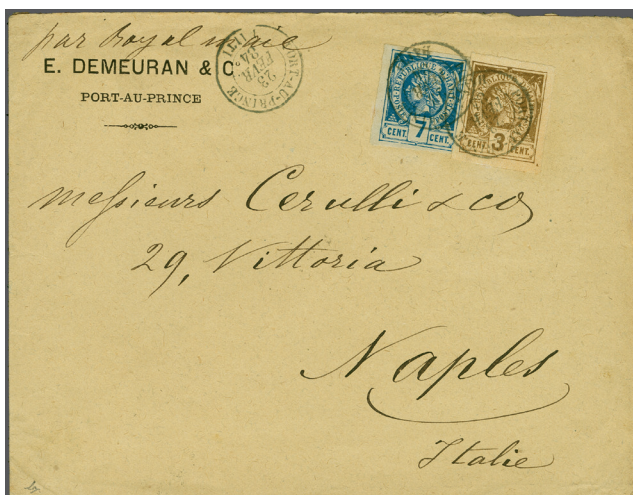 par Royal mail
E. DEMEURAN & Cº
PORT-AU-PRINCE
PORT-AU-PRINCE
23
FEVR.
84
HAITI
REPUBLIQUE D'HAITI
CENT. 7 CENT.
CENT. 3 CENT.
Messieurs Cerulli & co
29, Vittoria
Naples
Italie